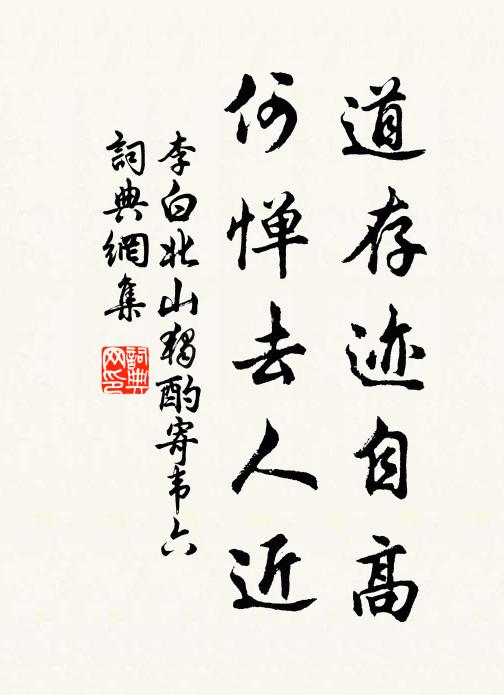 道存迹自高
何惮去人近
李白北山獨酌寄韦六
詞典網集
詞典
网印